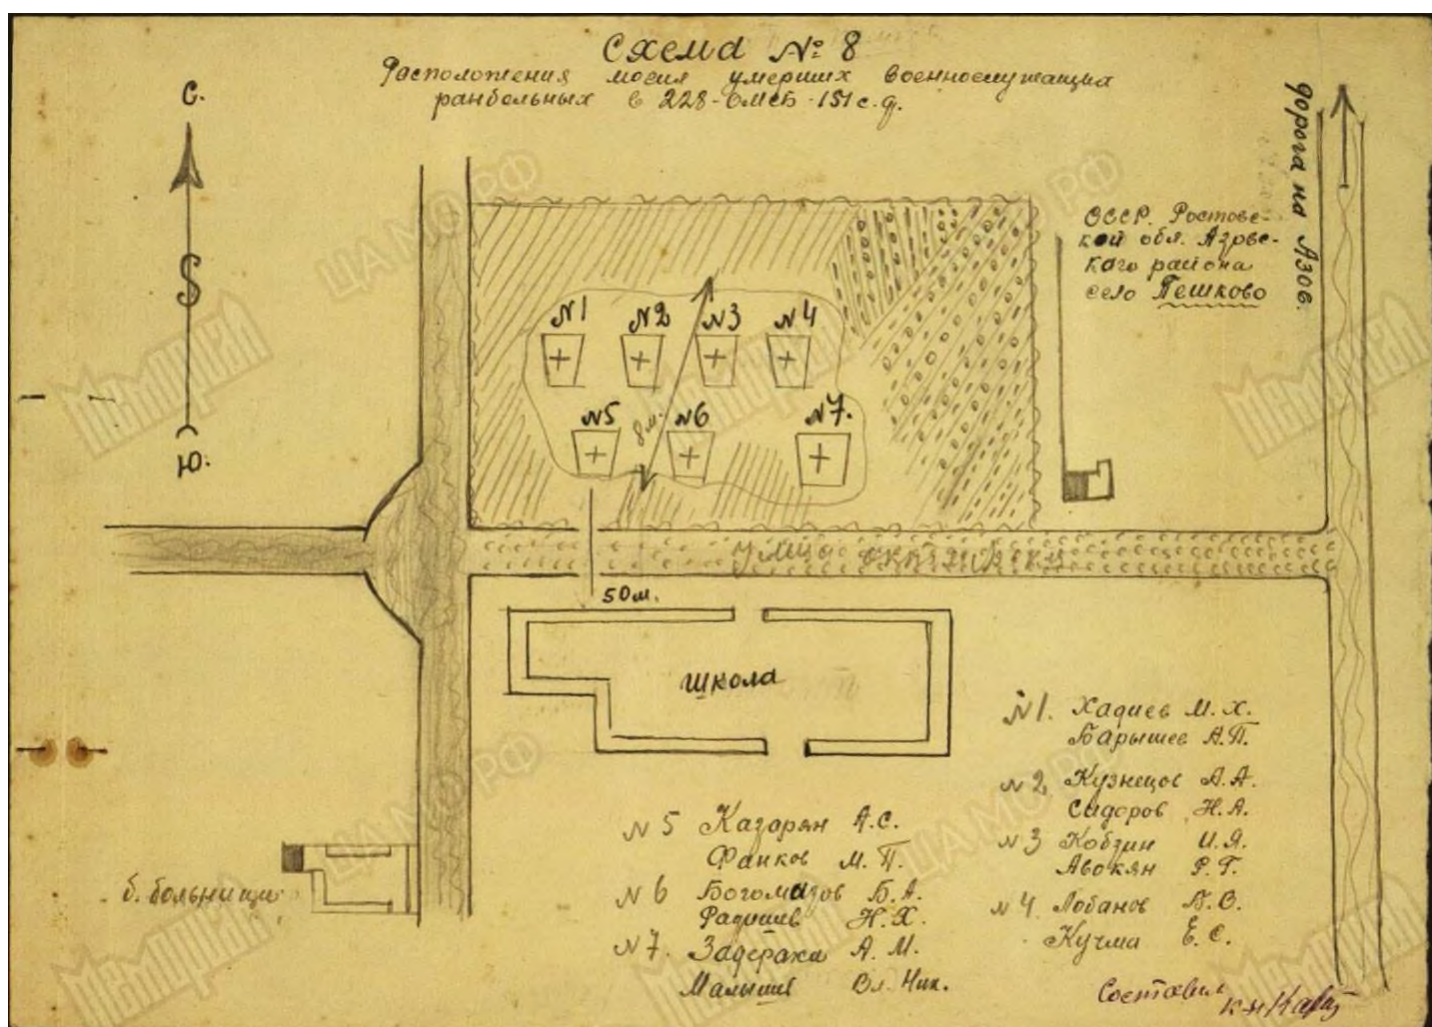 Схема № 8
Расположения могил умерших военнослужащих
ранбольных в 228-ОМСБ-151 с.д.
С.
Ю.
дорога на Азов.
РСФСР. Ростовс-
кой обл. Азовс-
кого района
село Пешково
N1
N2
N3
N4
N5
8 м.
N6
N7.
улица
50 м.
школа
б. больница
N1. Хадиев М. Х.
Барышев А. П.
N2 Кузнецов А. А.
Сидоров Н. А.
N3 Кобзин И. Я.
Авокян Р. Г.
N4 Лобанов В. С.
Кучма Е. С.
N5 Казарян А. С.
Фанков М. П.
N6 Богомазов Б. А.
Радишев Н. Х.
N7. Задерака А. М.
Малышев Вл. Ник.
Составил
ЦАМО РФ
Мемориал